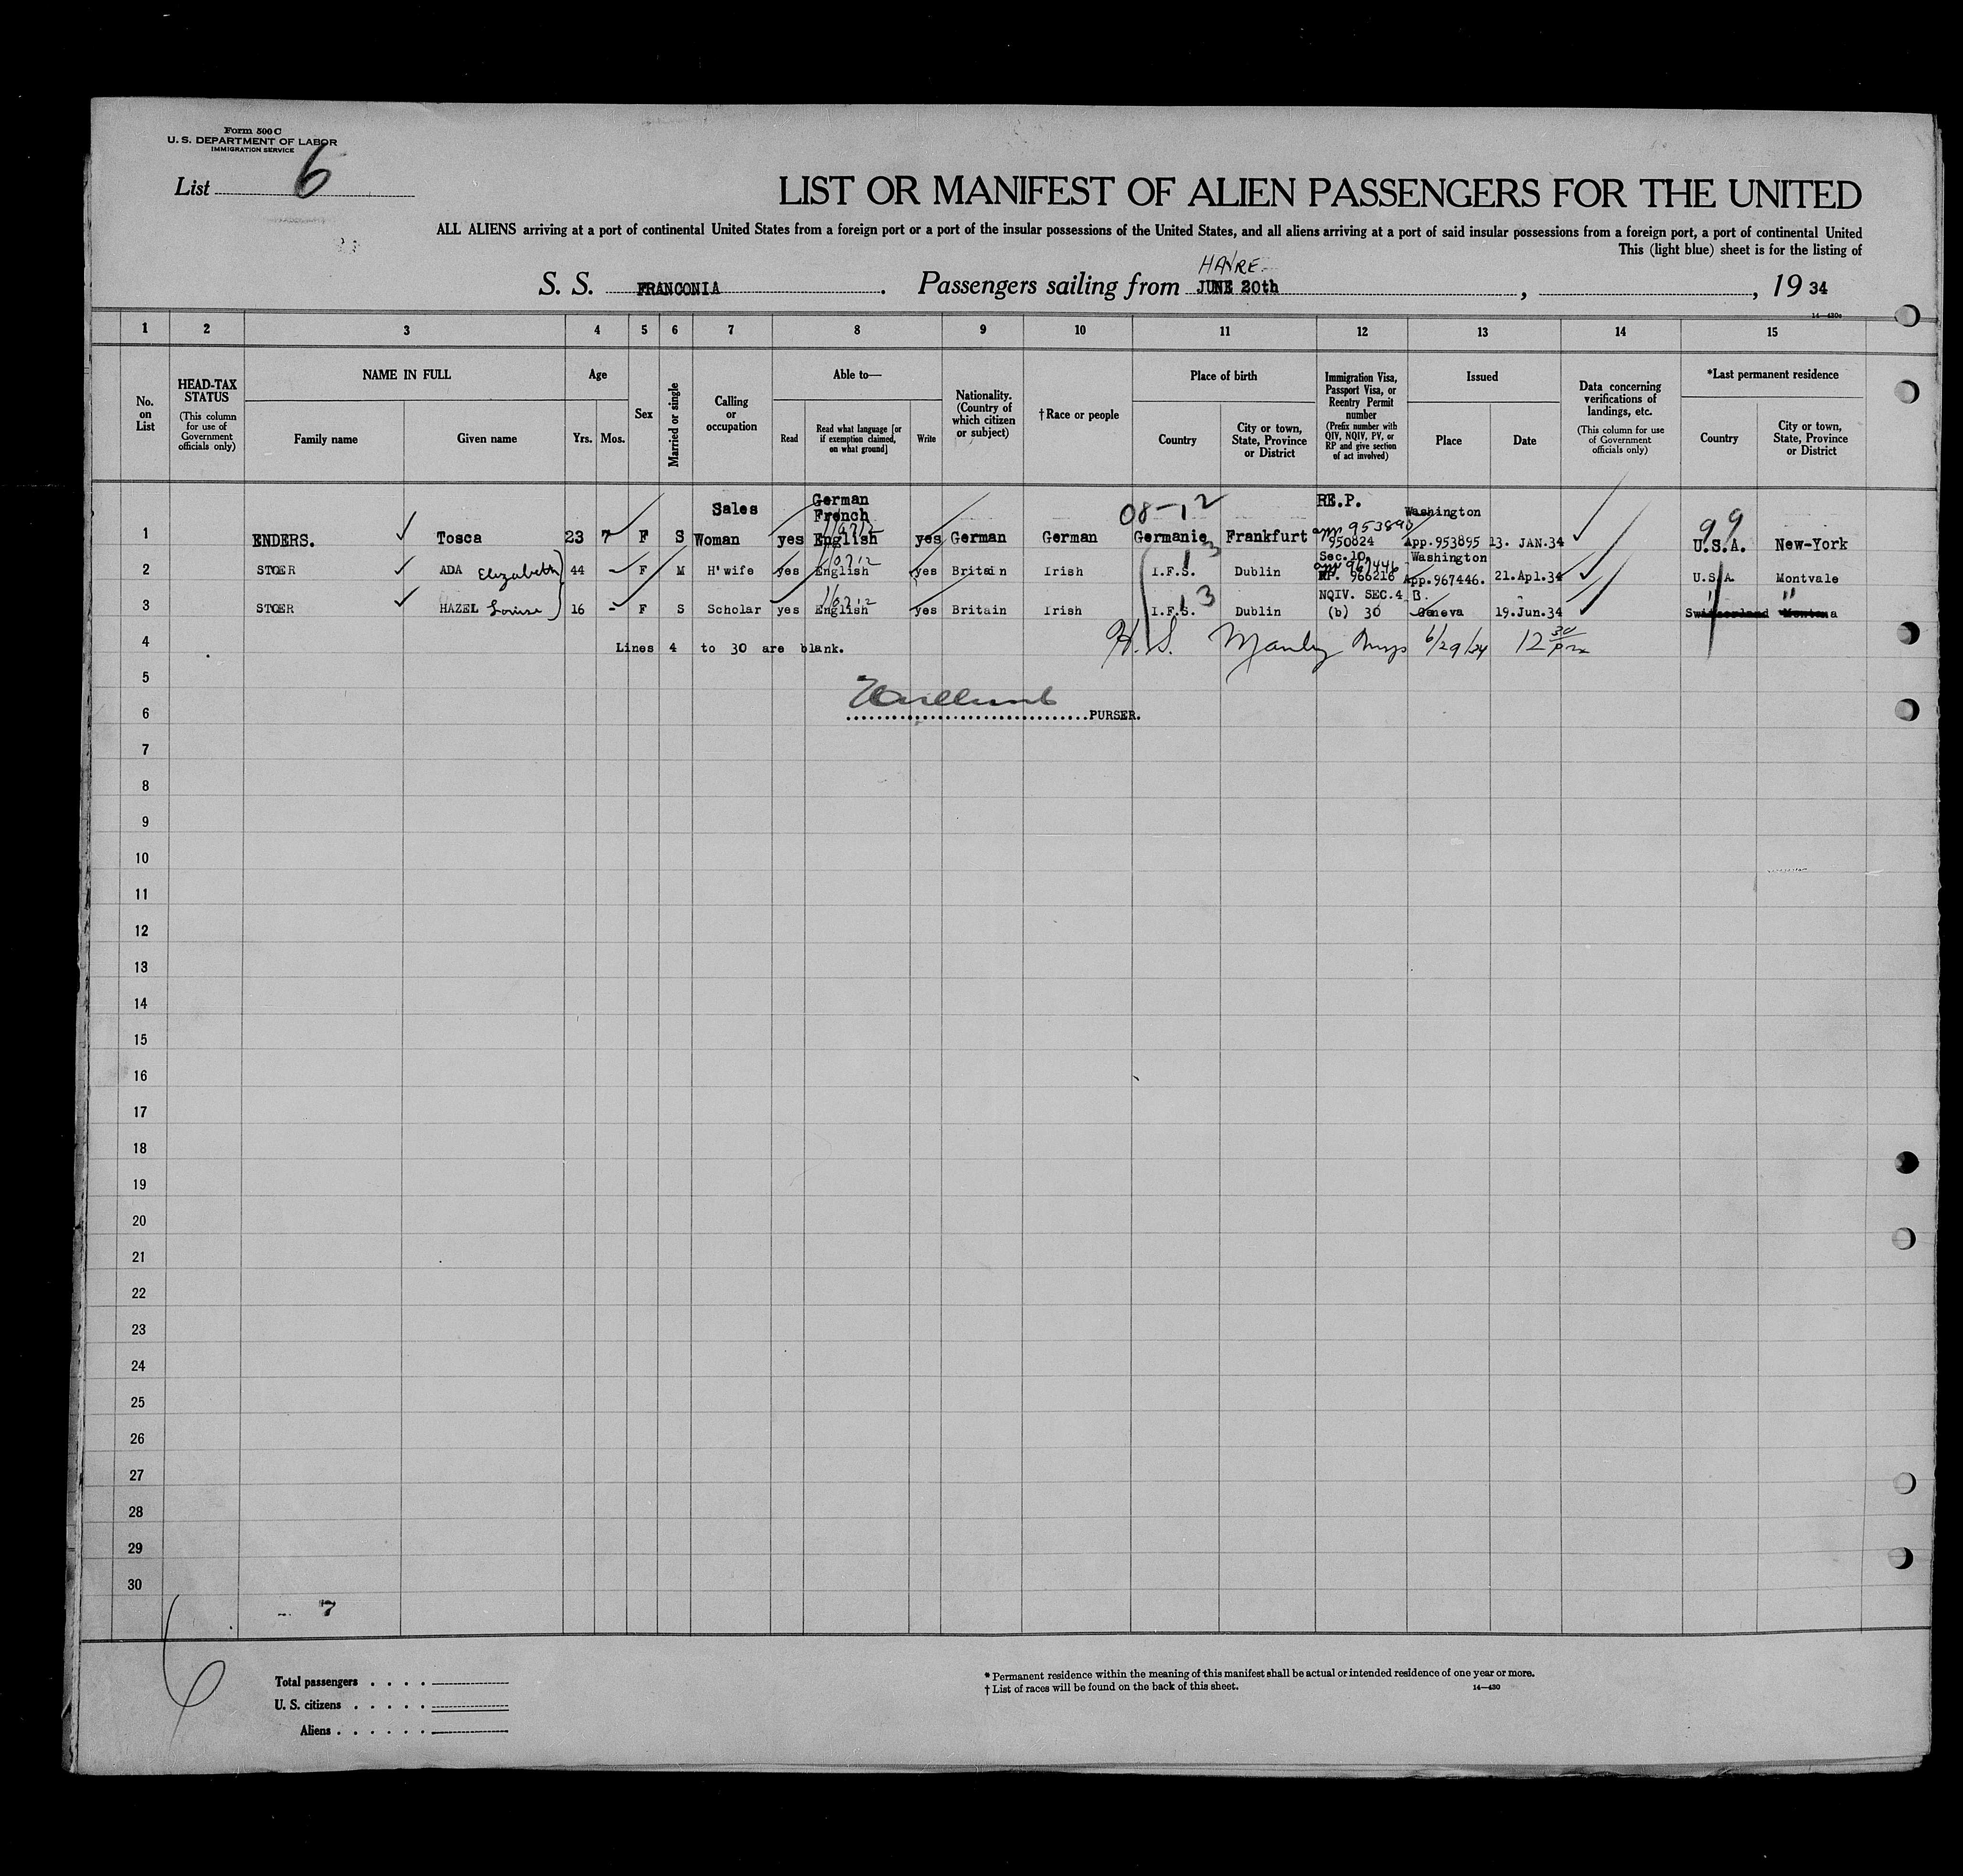 Form 500 C
U. S. DEPARTMENT OF LABOR
IMMIGRATION SERVICE
List 6
LIST OR MANIFEST OF ALIEN PASSENGERS FOR THE UNITED
ALL ALIENS arriving at a port of continental United States from a foreign port or a port of the insular possessions of the United States, and all aliens arriving at a port of said insular possessions from a foreign port, a port of continental United
This (light blue) sheet is for the listing of
HAVRE.
S. S. FRANCONIA. Passengers sailing from JUNE 20th, , 19 34
1 2 3 4 5 6 7 8 9 10 11 12 13 14 15
No. on List
HEAD-TAX STATUS (This column for use of Government officials only)
NAME IN FULL
Family name Given name
Age
Yrs. Mos.
Sex
Married or single
Calling or occupation
Able to—
Read Read what language [or if exemption claimed, on what ground] Write
Nationality. (Country of which citizen or subject)
†Race or people
Place of birth
Country City or town, State, Province or District
Immigration Visa, Passport Visa, or Reentry Permit number (Prefix number with QIV, NQIV, PV, or RP and give section of act involved)
Issued
Place Date
Data concerning verifications of landings, etc. (This column for use of Government officials only)
*Last permanent residence
Country City or town, State, Province or District
Sales German French 08-12 RE.P. Washington 99
1 ENDERS. Tosca 23 7 F S Woman yes English yes German German Germanie Frankfurt 950824 App.953895 13. JAN.34 U.S.A. New-York
Sec.10 Washington
2 STOER ADA Elizabeth 44 - F M H'wife yes English yes Britain Irish I.F.S. Dublin RP. 966216 App.967446. 21.Apl.34 U.S.A. Montvale
NQIV. SEC.4 B.
3 STOER HAZEL Louise 16 - F S Scholar yes English yes Britain Irish I.F.S. Dublin (b) 30 Geneva 19.Jun.34 Switzerland Montana
4 Lines 4 to 30 are blank. H. S. Manley Insp 6/29/34 12 30 pm
5
6 PURSER.
7
8
9
10
11
12
13
14
15
16
17
18
19
20
21
22
23
24
25
26
27
28
29
30
7
6
Total passengers
U. S. citizens
Aliens
* Permanent residence within the meaning of this manifest shall be actual or intended residence of one year or more.
† List of races will be found on the back of this sheet.
14—430